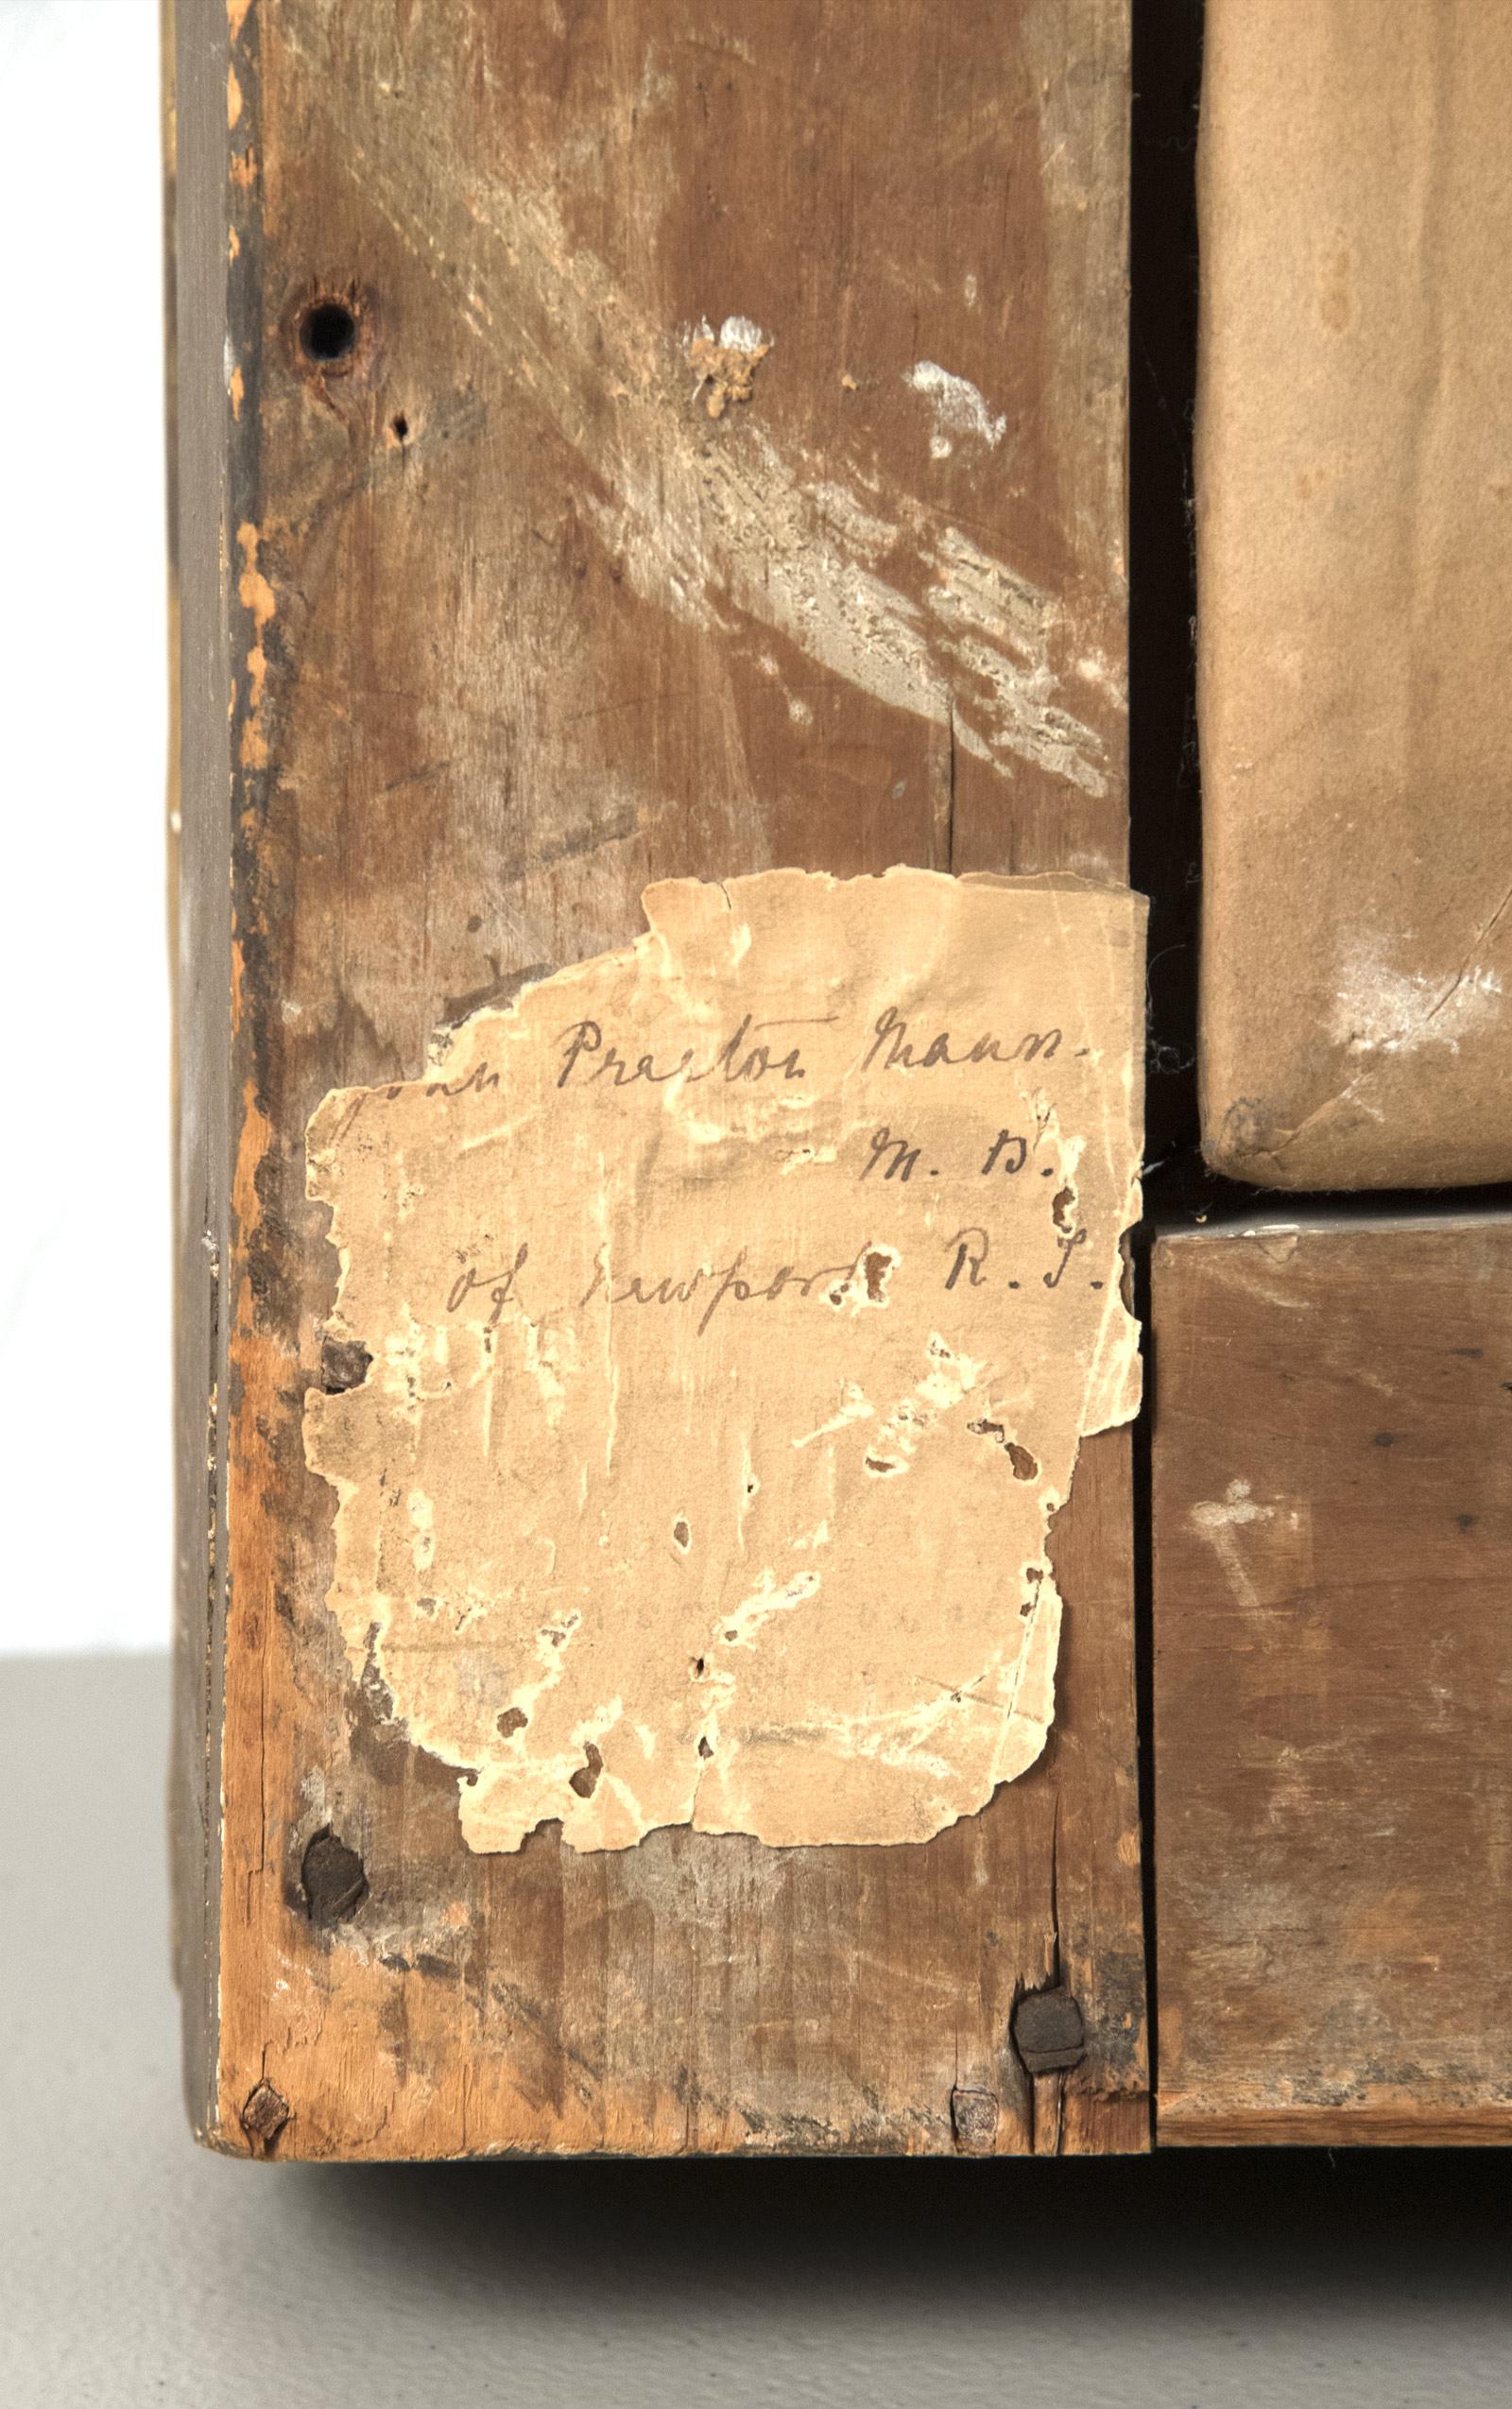 John Preston Mann.
M. D.
of Newport R. I.